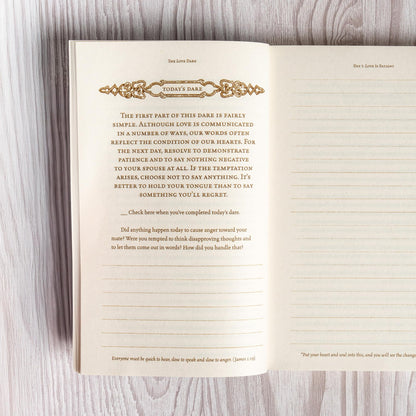 The Love Dare
TODAY'S DARE
The first part of this dare is fairly
simple. Although love is communicated
in a number of ways, our words often
reflect the condition of our hearts. For
the next day, resolve to demonstrate
patience and to say nothing negative
to your spouse at all. If the temptation
arises, choose not to say anything. It's
better to hold your tongue than to say
something you'll regret.
__ Check here when you've completed today's dare.
Did anything happen today to cause anger toward your
mate? Were you tempted to think disapproving thoughts and
to let them come out in words? How did you handle that?
Everyone must be quick to hear, slow to speak and slow to anger. (James 1:19)
Day 1: Love Is Patient
"Put your heart and soul into this, and you will see the change